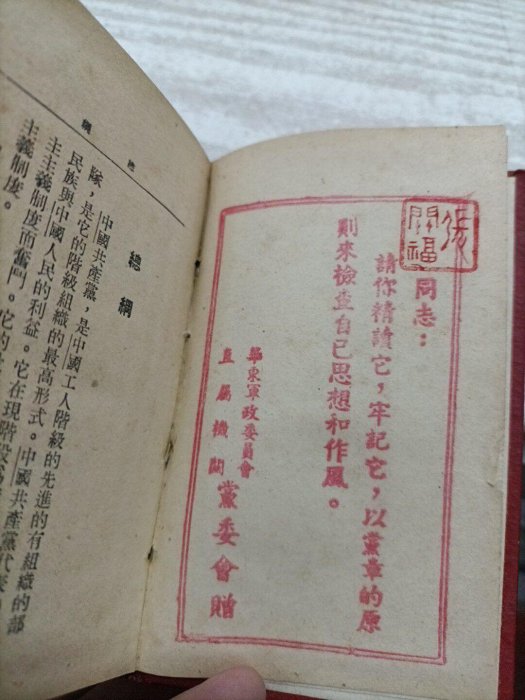 張開福
同志：
請你精讀它，牢記它，以黨章的原
則來檢查自己思想和作風。
華東軍政委員會
直屬機關黨委會贈
總綱
總綱
中國共產黨，是中國工人階級的先進的有組織的部
隊，是它的階級組織的最高形式。中國共產黨代表
民族與中國人民的利益。它在現階段
主主義制度而奮鬥。它的
主義制度。